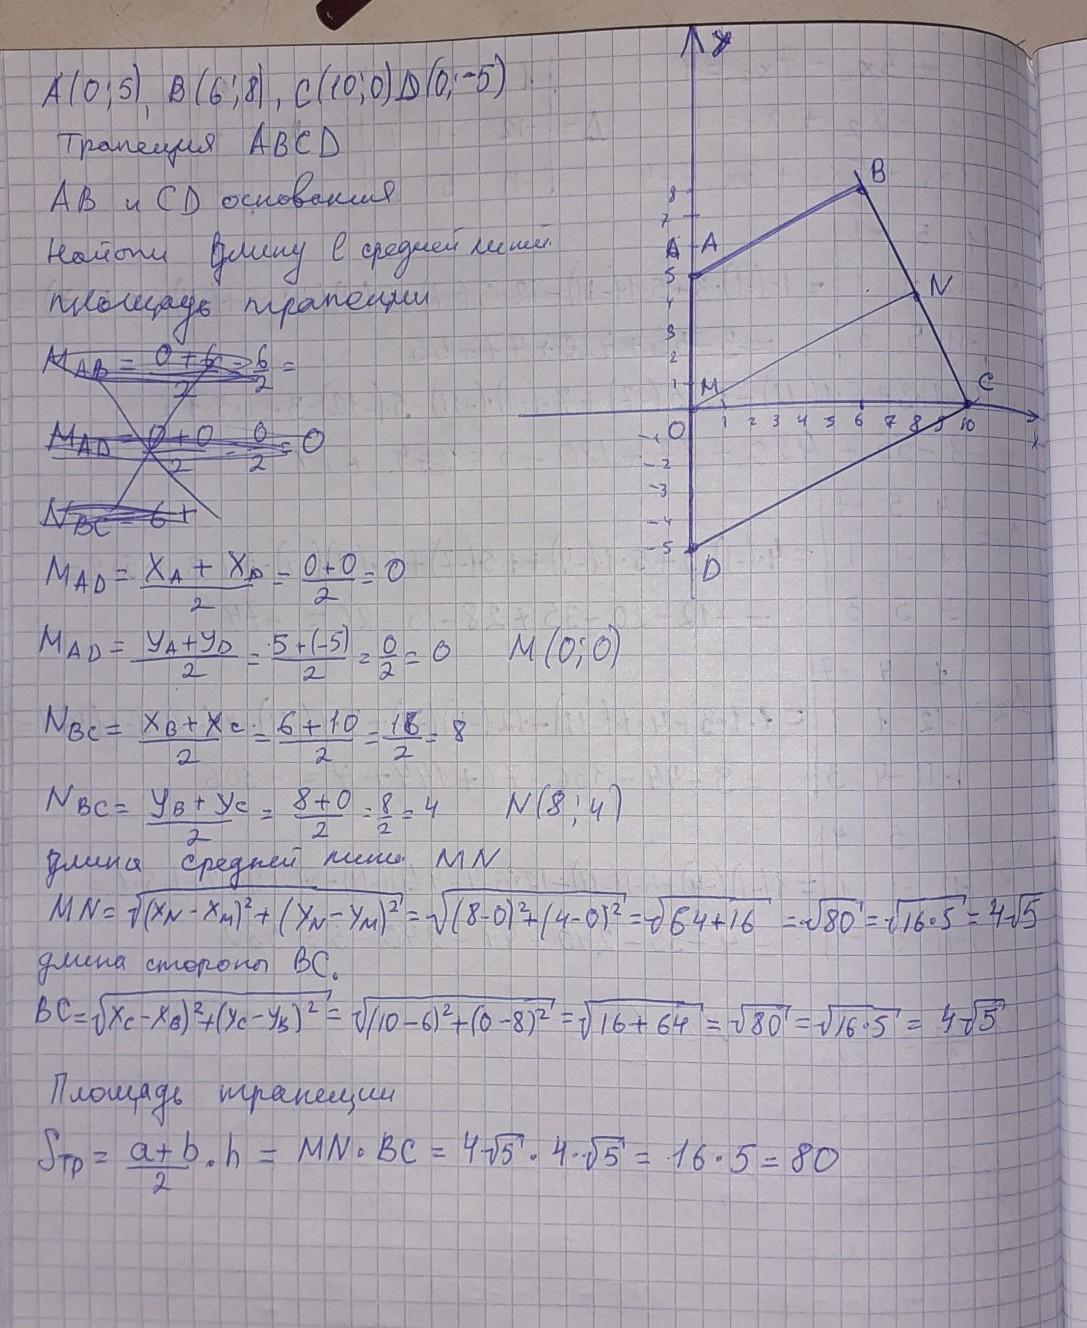 A(0;5), B(6;8), C(10;0) D(0;-5)
Трапеция ABCD
AB и CD основания
Найти длину l средней линии
площадь трапеции
M_AB = (0+6)/2 = 6/2 =
M_AD = (0+0)/2 = 0/2 = 0
N_BC = 6+
M_AD = (x_A + x_D)/2 = (0+0)/2 = 0
M_AD = (y_A + y_D)/2 = (5+(-5))/2 = 0/2 = 0 M(0;0)
N_BC = (x_B + x_C)/2 = (6+10)/2 = 16/2 = 8
N_BC = (y_B + y_C)/2 = (8+0)/2 = 8/2 = 4 N(8;4)
длина средней линии MN
MN = √((x_N - x_M)² + (y_N - y_M)²) = √((8-0)² + (4-0)²) = √(64+16) = √80 = √(16·5) = 4√5
длина стороны BC.
BC = √((x_C - x_B)² + (y_C - y_B)²) = √((10-6)² + (0-8)²) = √(16+64) = √80 = √(16·5) = 4√5
Площадь трапеции
S_тр = (a+b)/2 · h = MN · BC = 4√5 · 4·√5 = 16·5 = 80
y
B
8
7
A
5
4
N
3
2
1
M
C
0
1 2 3 4 5 6 7 8 9 10
x
-1
-2
-3
-4
-5
D